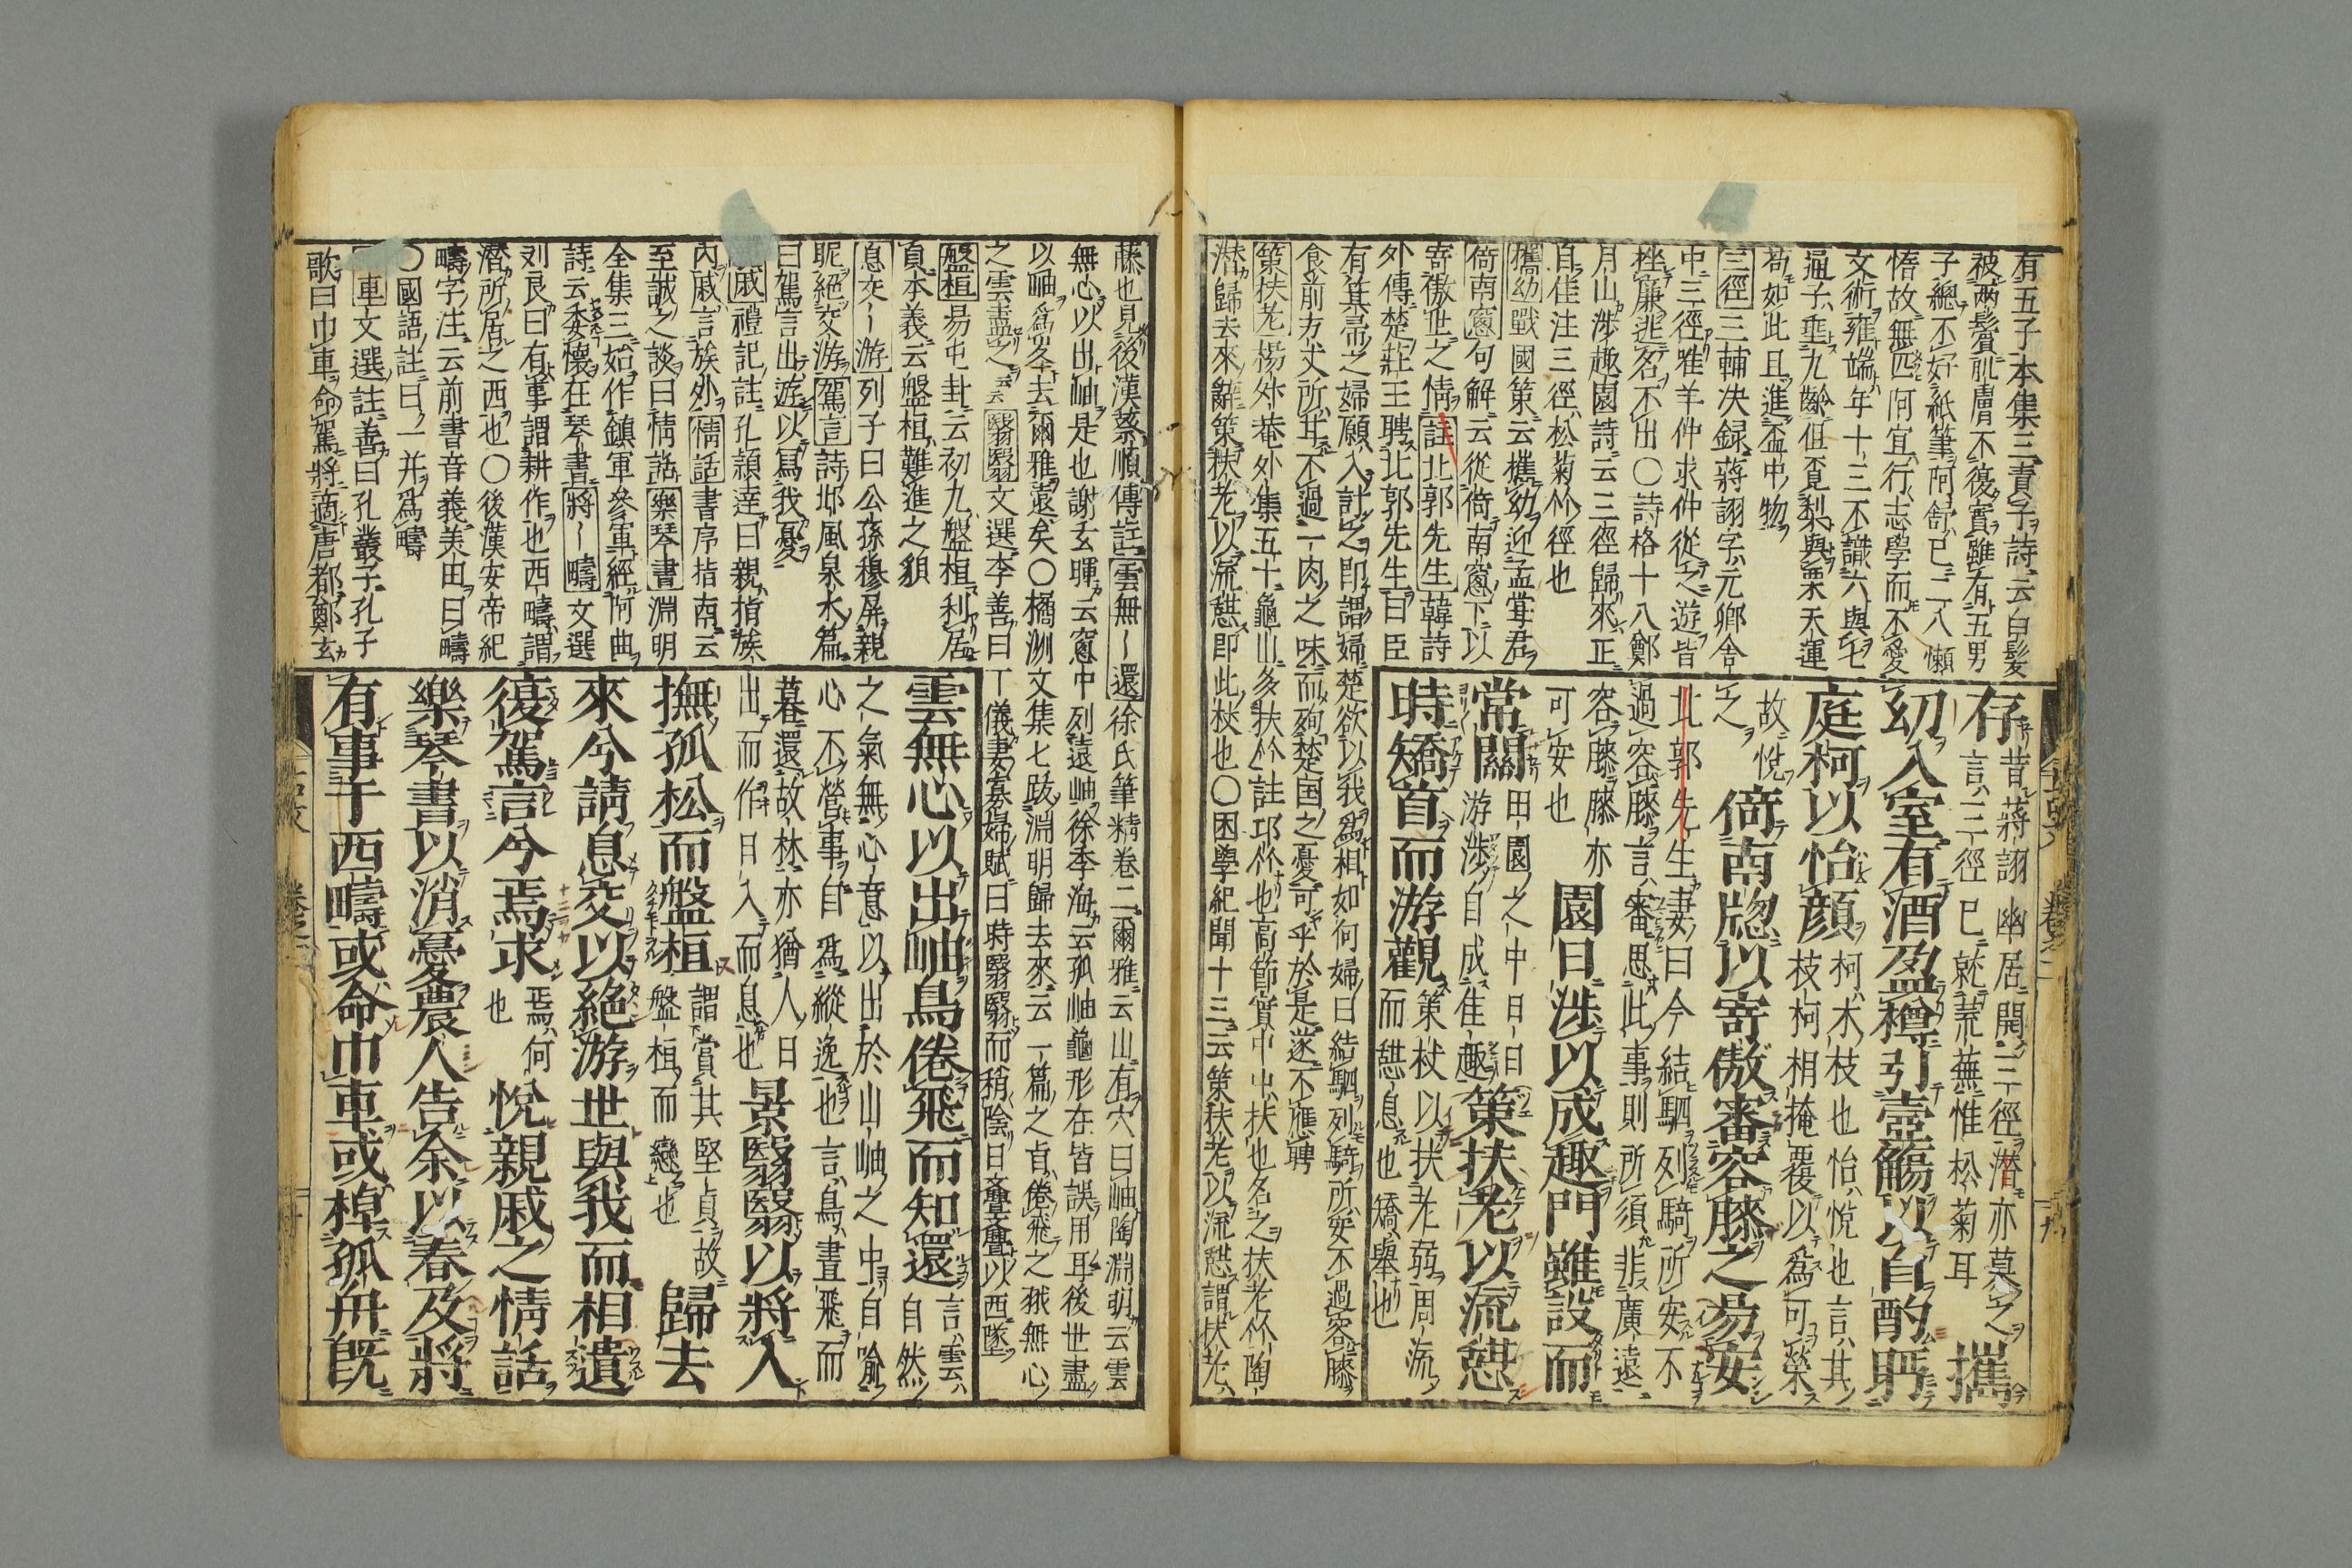 有五子本集三責子詩云白髮
被兩鬢肌膚不復實雖有五男
子總不好紙筆阿舒已二八懶
惰故無匹阿宣行志學而不愛
文術雍端年十三不識六與七
通子垂九齡但覓梨與栗天運
苟如此且進盃中物
三徑三輔决録蔣詡字元卿舎
中三徑惟羊仲求仲從之遊皆
挫廉逃名不出〇詩格十八鄭
月山渉趣園詩云三徑歸來正
自佳注三徑松菊竹徑也
攜幼戰國策云攜幼迎孟甞君
倚南窓句解云從倚南窓下以
寄傲世之情註北郭先生韓詩
外傳楚莊王聘北郭先生曰臣
有箕帚之婦願入計之即謂婦楚欲以我爲相如何婦曰結駟列騎所安不過容膝
食前方丈所甘不過一肉之味而殉楚国之憂可乎於是遂不應聘
策扶老楊升菴外集五十龜山多扶竹註邛竹也高節實中出扶也名之扶老竹陶
潛歸去來辭策扶老以流憇即此杖也〇困學紀聞十三云策扶老以流憇謂扶老
存昔蔣詡幽居開三徑潛亦慕之言三徑已就荒蕪惟松菊耳攜
幼入室有酒盈樽引壺觴以自酌眄
庭柯以怡顔柯木枝也怡悅也言其枝柯相掩覆以爲可榮
故悅之倚南牕以寄傲審容膝之易安
北郭先生妻曰今結駟列騎所安不過容膝言審思此事則所須非廣遠
容膝膝亦可安也園日渉以成趣門雖設而
常關田園之中日日游渉自成佳趣策扶老以流憇
時矯首而游觀策杖以扶老弱周流而憇息也矯舉也
藤也見後漢蔡順傳註雲無〜還徐氏筆精卷二爾雅云山有穴曰岫陶淵明云雲
無心以出岫是也謝玄暉云窓中列遠岫徐季海云孤岫龜形在皆誤用耳後世盡
以岫爲峯去爾雅遠矣〇橘洲文集七跋淵明歸去來云一篇之貞倦飛之翼無心
之雲盡之云云翳翳文選李善曰丁儀妻寡婦賦曰時翳翳而稍陰日亹亹以西墜
盤桓易屯卦云初九盤桓利居
貞本義云盤桓難進之貌
息交〜游列子曰公孫穆屏親
昵絶交游駕言詩邶風泉水篇
曰駕言出遊以冩我憂
戚禮記註孔頴達曰親指族
内戚言族外情話書序指南云
至誠之談曰情話樂琴書淵明
全集三始作鎮軍參軍經阿曲
詩云委懷在琴書將〜疇文選
刘良曰有事謂耕作也西疇謂
潛所居之西也〇後漢安帝紀
疇字注云前書音義美田曰疇
〇國語註曰一井爲疇
車文選註善曰孔叢子孔子
歌曰巾車命駕將適唐都鄭玄
雲無心以出岫鳥倦飛而知還言雲自然
之氣無心意以出於山岫之中自喻心不營事自爲縱逸也言鳥晝飛而
暮還故林亦猶人日出而作日入而息也景翳翳以將入
撫孤松而盤桓謂賞其堅貞故盤桓而戀也歸去
來兮請息交以絶游世與我而相遺
復駕言兮焉求焉何也悅親戚之情話
樂琴書以消憂農人告余以春及將
有事于西疇或命巾車或棹孤舟既